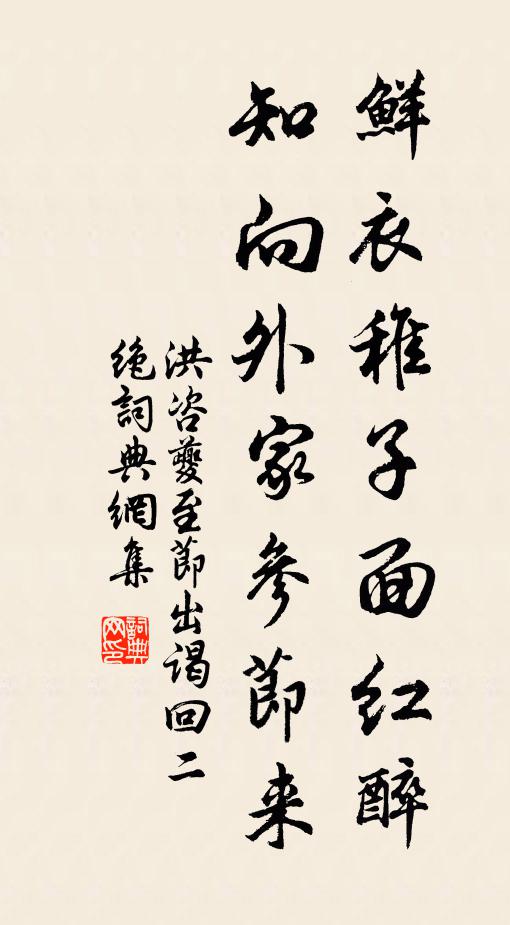 鮮衣稚子面红醉
知向外家參節来
洪咨夔至節出谒回二
绝詞典網集
詞典网印